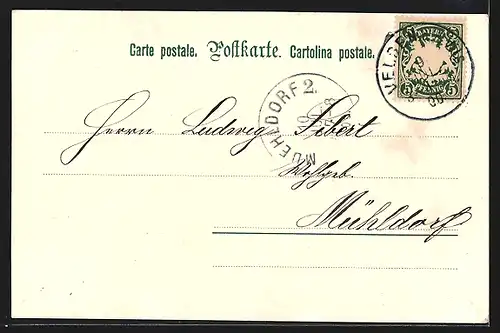 Carte postale. Postkarte. Cartolina postale.
VELDEN
5 PFENNIG 5
MUEHLDORF 2.
Herrn Ludwig Sebert
Wohlgeb.
Mühldorf